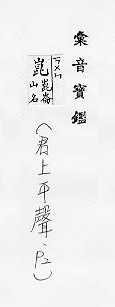 彙音寶鑑
崑 崑崙
山名
(君上平聲,P2)